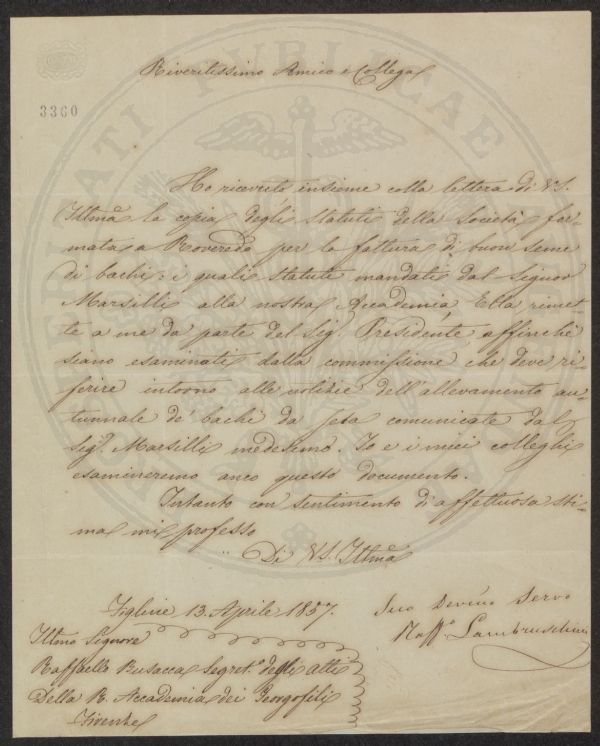 Riveritissimo Amico e Collega
3360
Ho ricevuto insieme colla lettera di V.S.
Illma la copia degli statuti della Società for-
mata a Roveredo per la fattura di buon seme
di bachi: i quali statuti mandati dal Signor
Marsilli alla nostra Accademia, Ella rimet-
te a me da parte del Sig. Presidente, affinchè
siano esaminati dalla commissione che deve ri-
ferire intorno alle notizie dell'allevamento au-
tunnale de' bachi da seta comunicate dal
Sigr. Marsilli medesimo. Io e i miei colleghi
esamineremo anco questo documento.
Intanto con sentimento di affettuosa sti-
ma mi professo
Di V.S. Illma
Figline 13. Aprile 1857.
Suo Devmo Servo
Raffo. Lambruschini
Illmo Signore
Raffaello Busacca Segreto. degli Atti
Della R. Accademia dei Georgofili
Firenze